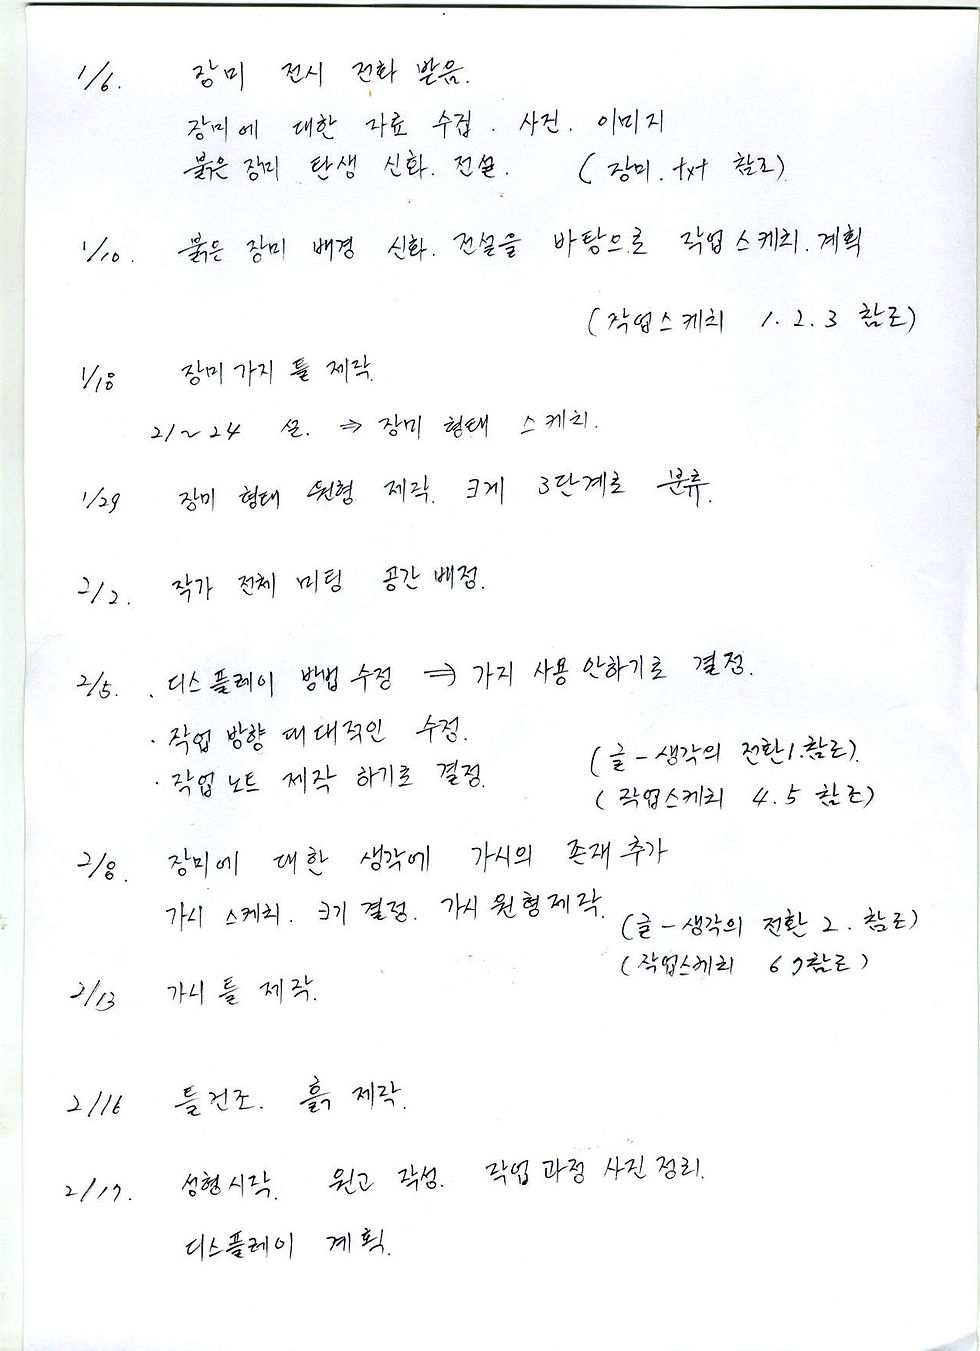 1/6. 장미 전시 전화 받음.
장미에 대한 자료 수집. 사진. 이미지
붉은 장미 탄생 신화. 전설. (장미.txt 참조)
1/10. 붉은 장미 배경 신화. 전설을 바탕으로 작업스케치. 계획
(작업스케치 1.2.3 참조)
1/18 장미가지 틀 제작.
21~24 설. ⇒ 장미 형태 스케치.
1/29 장미 형태 원형 제작. 크게 3단계로 분류.
2/2. 작가 전체 미팅 공간배정.
2/5. . 디스플레이 방법 수정 ⇒ 가지 사용 안하기로 결정.
· 작업 방향 대대적인 수정.
(글-생각의 전환1.참조).
· 작업 노트 제작 하기로 결정.
(작업스케치 4.5 참조)
2/8. 장미에 대한 생각에 가시의 존재 추가
가시 스케치. 크기 결정. 가시 원형제작.
(글-생각의 전환 2. 참조)
(작업스케치 6 7참조)
2/13 가시 틀 제작.
2/16 틀건조. 흙 제작.
2/17. 성형시작. 원고 작성. 작업 과정 사진 정리.
디스플레이 계획.